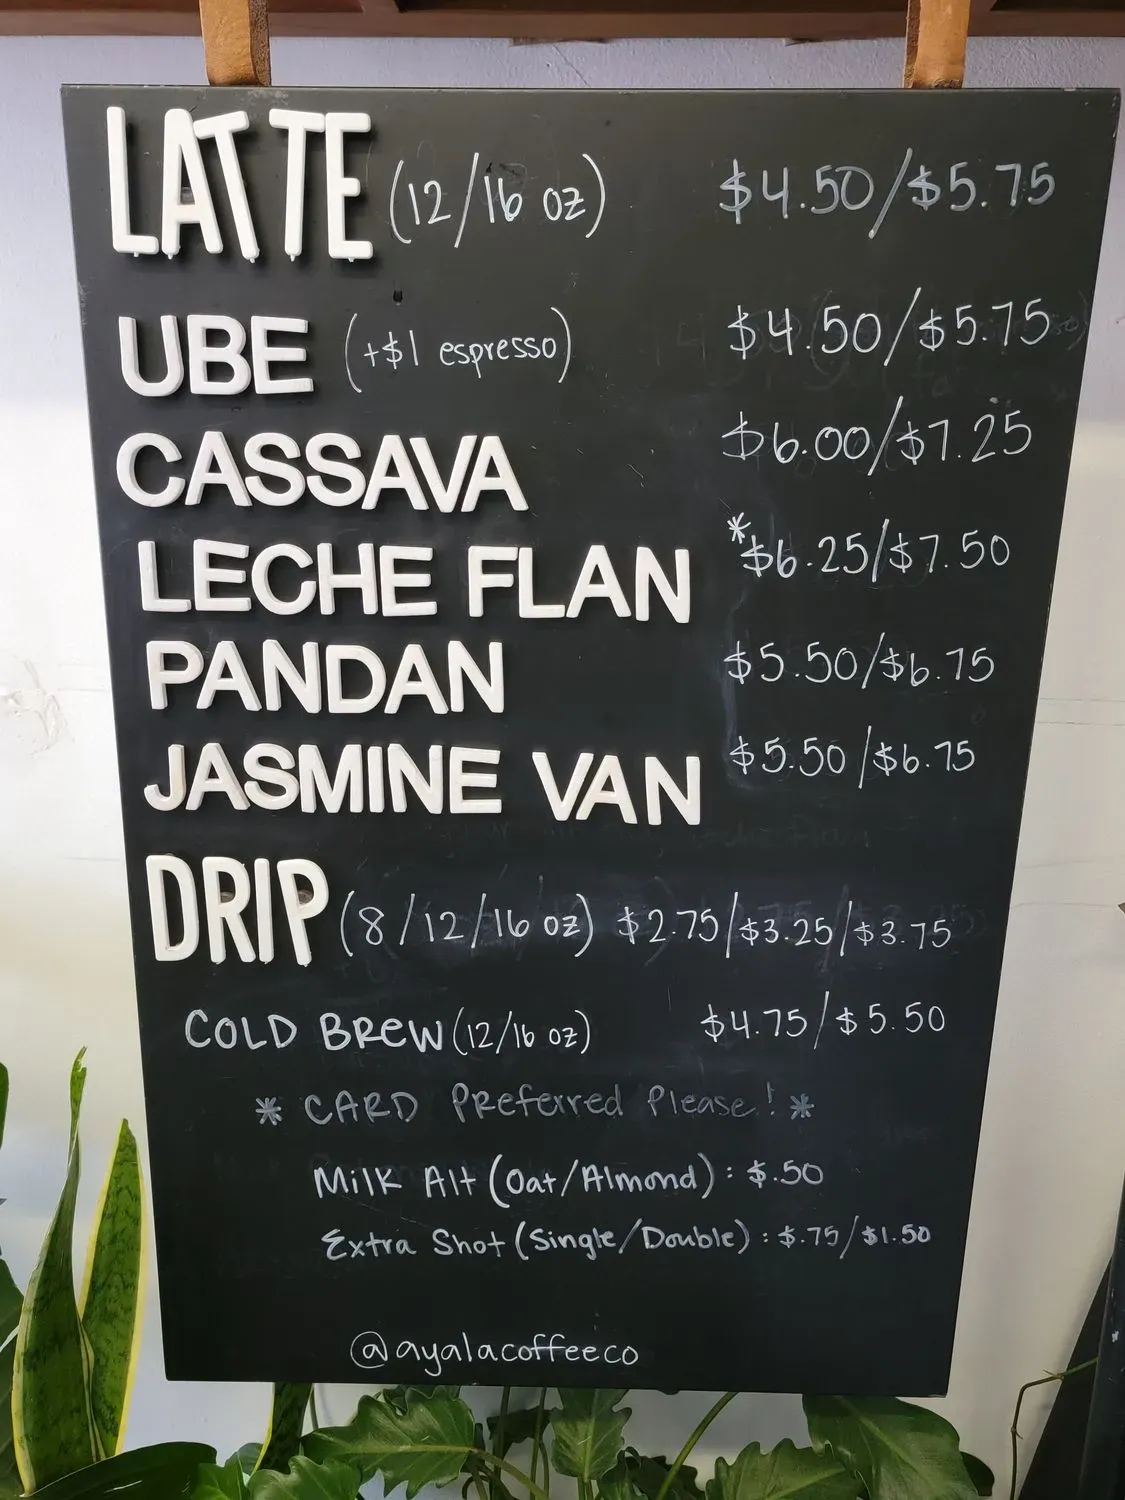 LATTE (12/16 oz) $4.50/$5.75
UBE (+$1 espresso) $4.50/$5.75
CASSAVA $6.00/$7.25
LECHE FLAN *$6.25/$7.50
PANDAN $5.50/$6.75
JASMINE VAN $5.50/$6.75
DRIP (8/12/16 oz) $2.75/$3.25/$3.75
COLD BREW (12/16 oz) $4.75/$5.50
* CARD Preferred Please! *
Milk Alt (Oat/Almond): $.50
Extra Shot (Single/Double): $.75/$1.50
@ayalacoffeeco